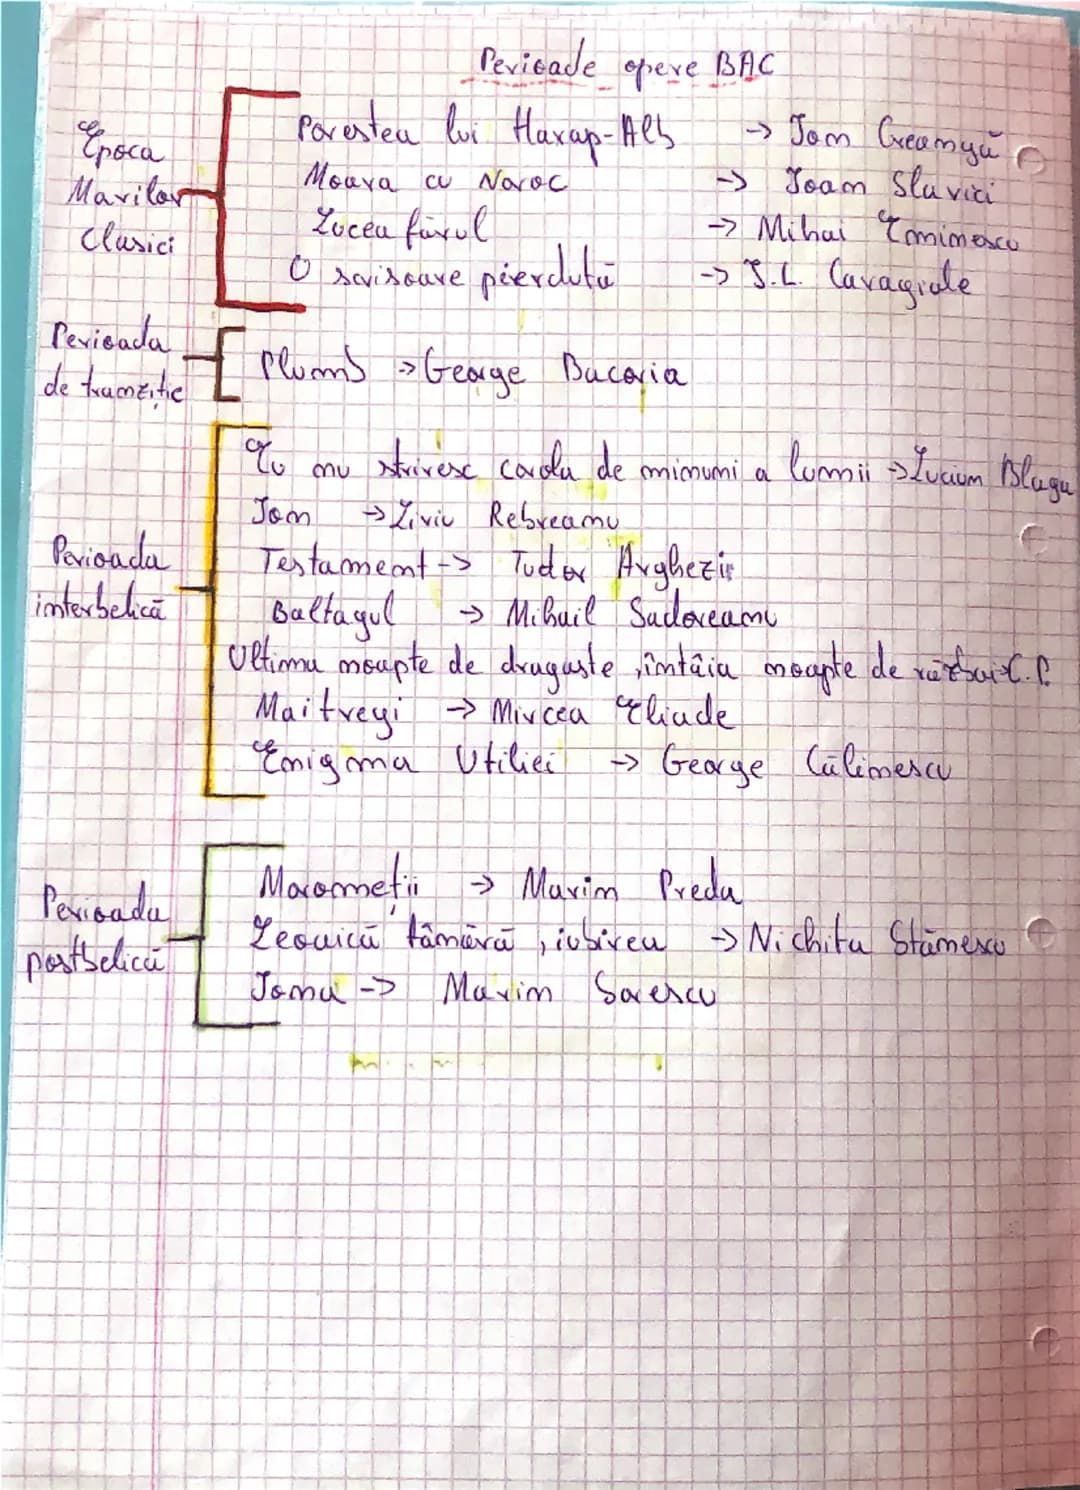 Perioade opere BAC
Epoca Marilor Clasici
Povestea lui Harap-Alb -> Ion Creangă
Moara cu Noroc -> Ioan Slavici
Luceafărul -> Mihai Eminescu
O scrisoare pierdută -> I.L. Caragiale
Perioada de tranziție
Plumb -> George Bacovia
Perioada interbelică
Eu nu strivesc corola de minuni a lumii -> Lucian Blaga
Ion -> Liviu Rebreanu
Testament -> Tudor Arghezi
Baltagul -> Mihail Sadoveanu
Ultima noapte de dragoste, întâia noapte de război C.P.
Maitreyi -> Mircea Eliade
Enigma Otiliei -> George Călinescu
Perioada postbelică
Moromeții -> Marin Preda
Leoaică tânără, iubirea -> Nichita Stănescu
Iona -> Marin Sorescu